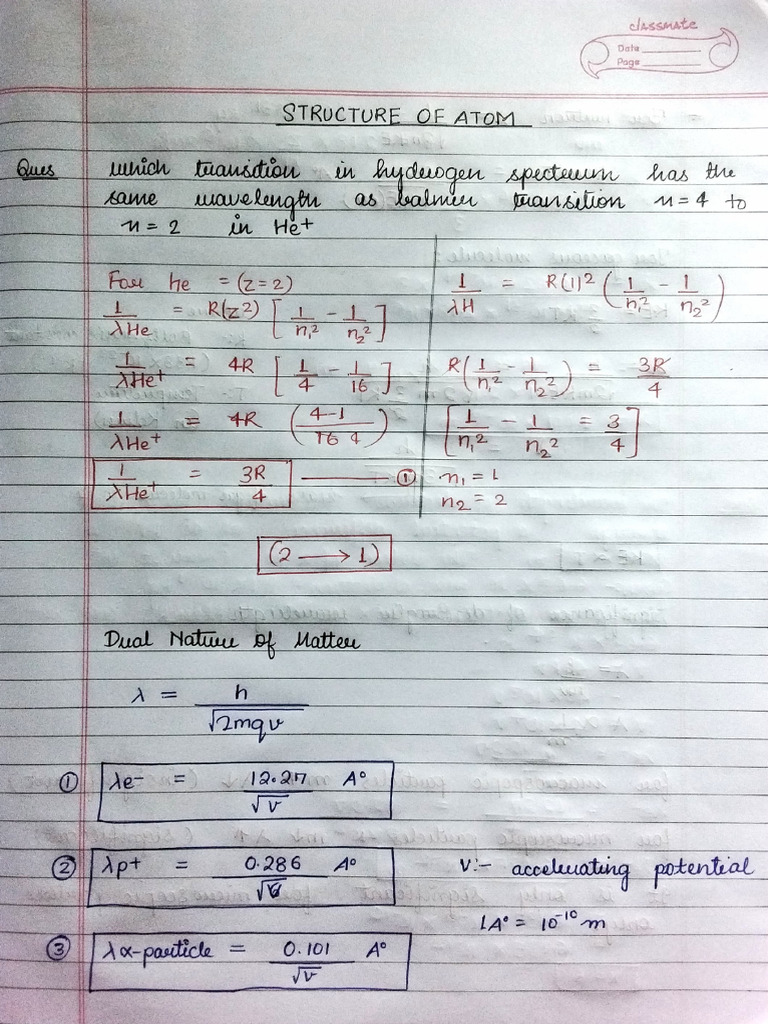 classmate
Date
Page
STRUCTURE OF ATOM
Ques which transition in hydrogen spectrum has the
same wavelength as balmer transition n=4 to
n=2 in He+
For he = (z=2)
1/λHe = R(z²) [1/n₁² - 1/n₂²]
1/λHe+ = 4R [1/4 - 1/16]
1/λHe+ = 4R (4-1/16 4)
1/λHe+ = 3R/4 ①
1/λH = R(1)² (1/n₁² - 1/n₂²)
R(1/n₁² - 1/n₂²) = 3R/4
[1/n₁² - 1/n₂² = 3/4]
n₁ = 1
n₂ = 2
(2 → 1)
Dual Nature Of Matter
λ = h/√2mqv
① λe⁻ = 12.27/√v A°
② λp+ = 0.286/√v A°
v:- accelerating potential
1A° = 10⁻¹⁰ m
③ λα-particle = 0.101/√v A°